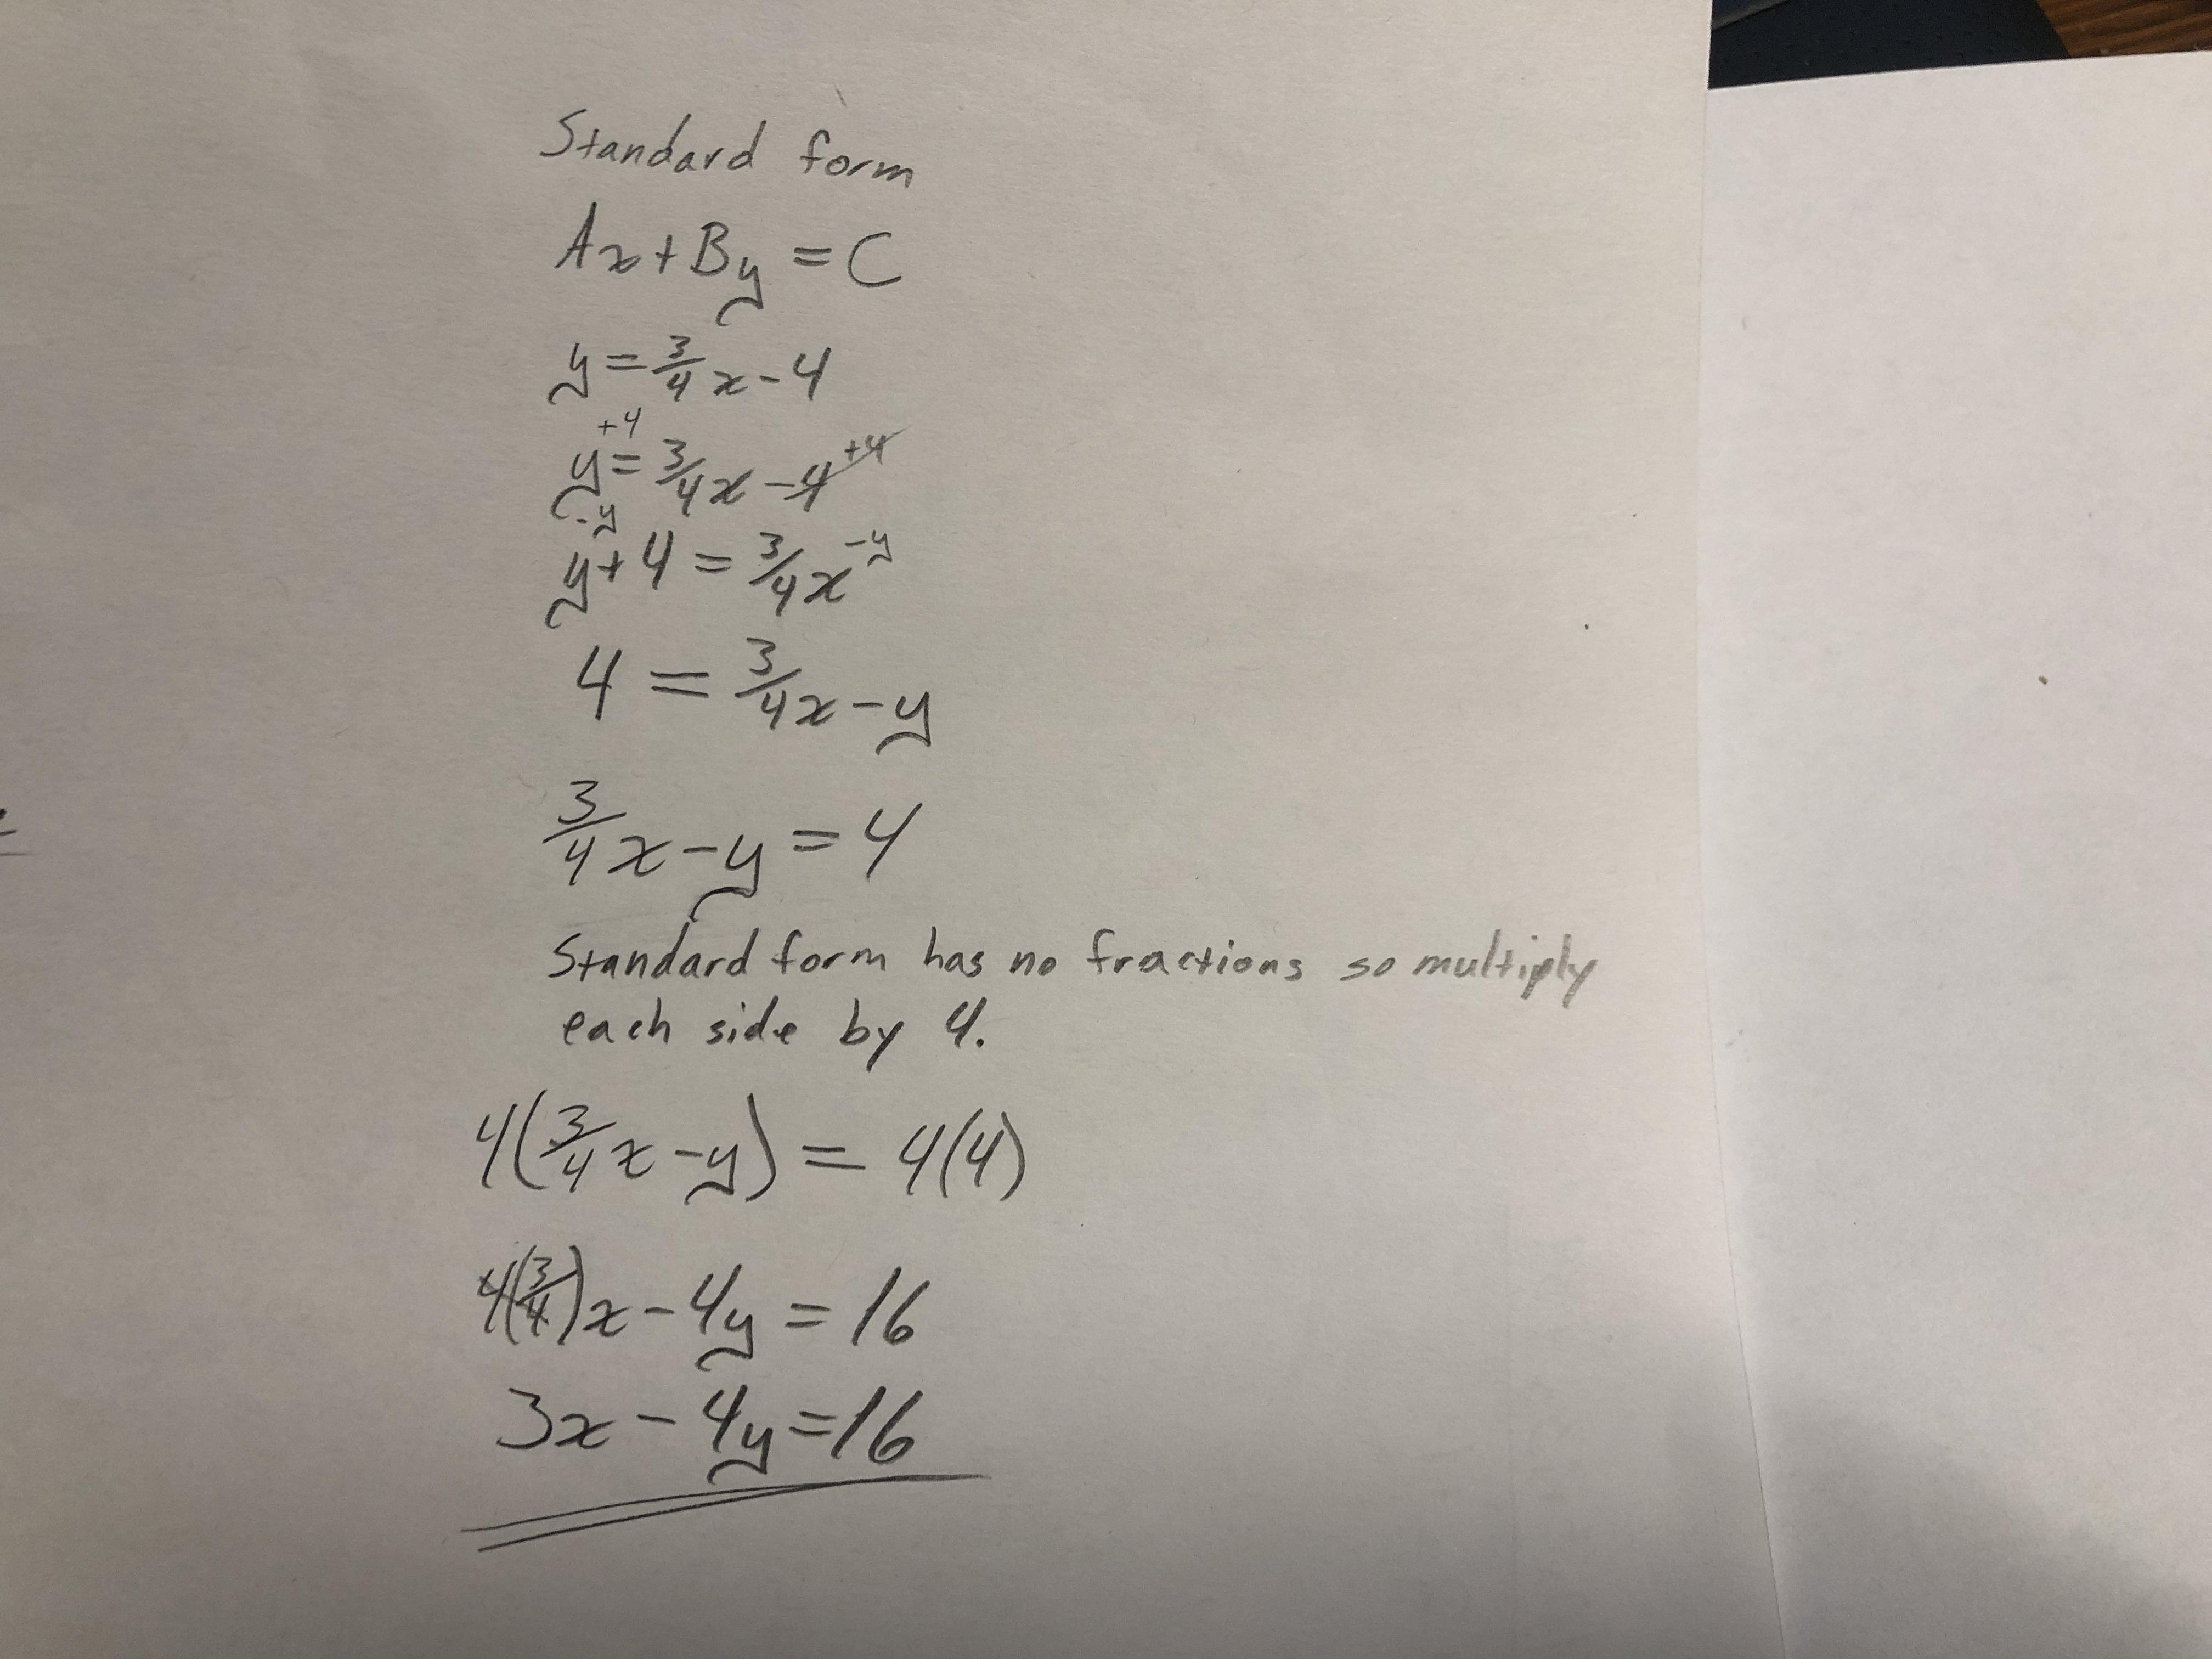 Standard form
Ax+By = C
y = 3/4 x - 4
+4
y = 3/4 x - 4 +4
-y
y + 4 = 3/4 x -y
4 = 3/4 x - y
3/4 x - y = 4
Standard form has no fractions so multiply
each side by 4.
4(3/4 x - y) = 4(4)
4(3/4)x - 4y = 16
3x - 4y = 16